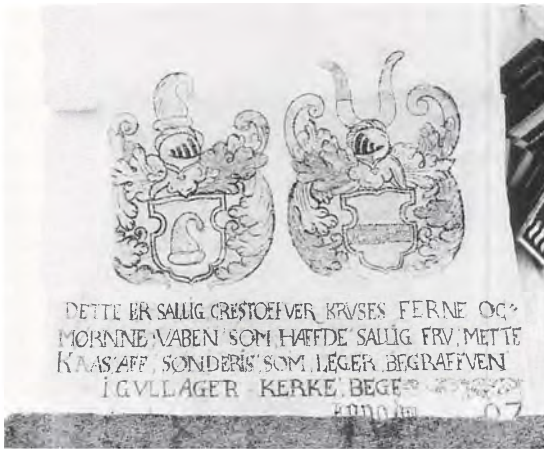 DETTE ER SALLIG CRESTOFFVER KRVSES FERNE OG
MØRNNE VABEN SOM HAFFDE SALLIG FRV METTE
KAAS AFF SØNDERIS SOM LEGER BEGRAFFVEN
I GVLLAGER KERKE BEGE